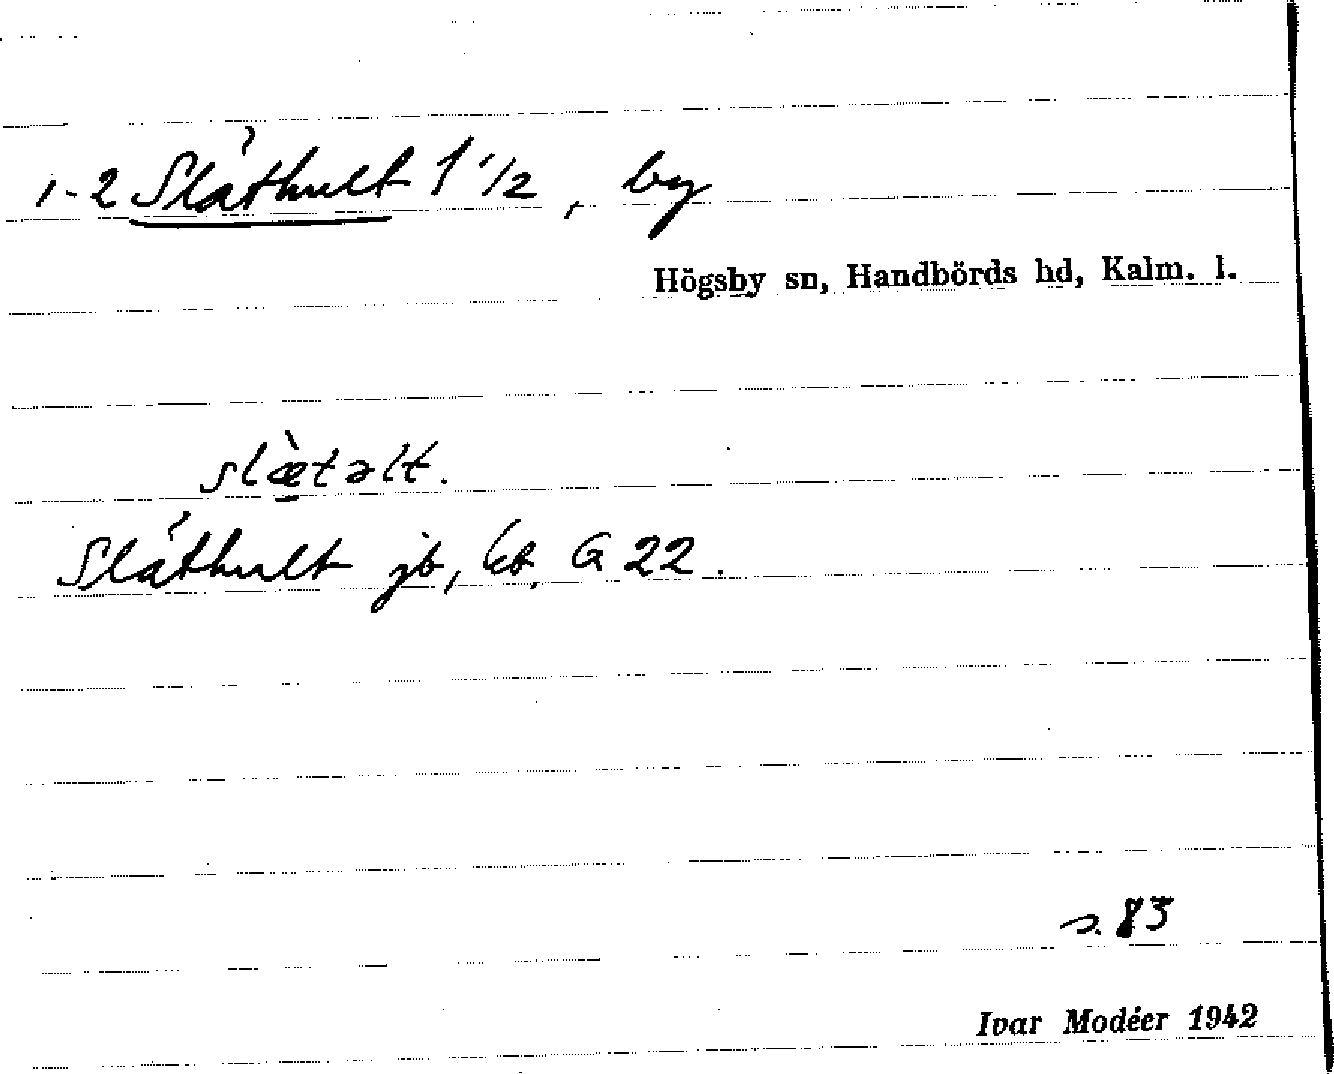 1-2 Slåthult 1 1/2, by
Högsby sn, Handbörds hd, Kalm. l.
slæ̀təlt.
Slåthult jb, kb, G 22.
s. 83
Ivar Modéer 1942